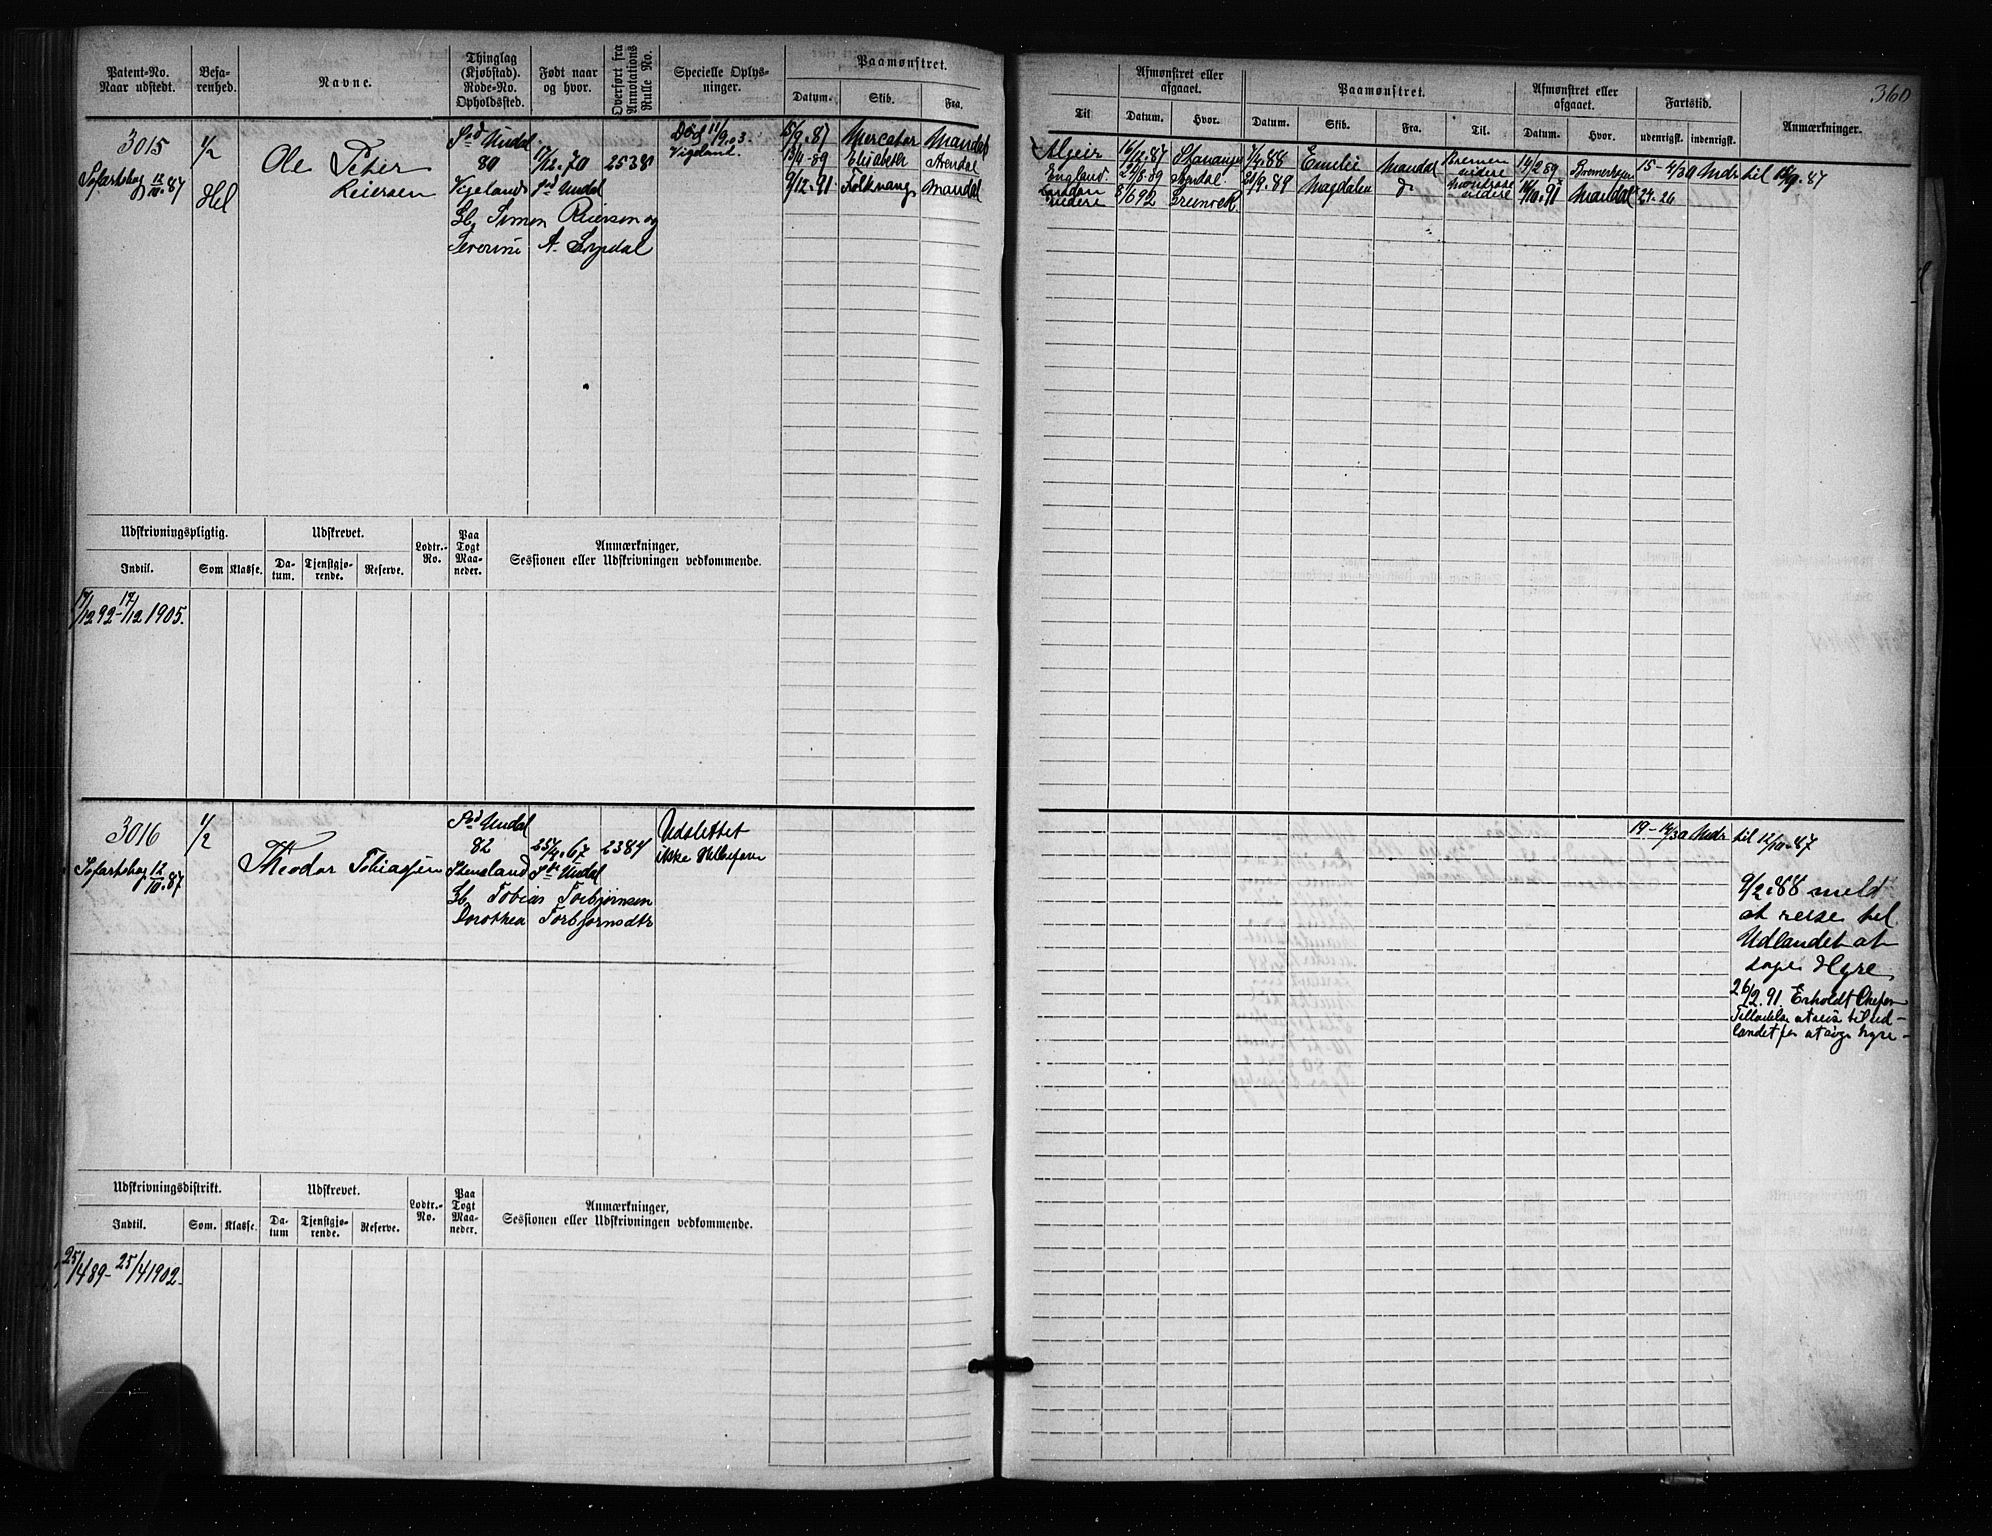 360
Patent-No.
Naar udstedt.
Befa-
renhed.
Navne.
Thinglag
(Kjøbstad).
Rode-No.
Opholdssted.
Født naar
og hvor.
Overført fra
Annotations
Rulle No.
Specielle Oplys-
ninger.
Paamønstret.
Datum.
Skib.
Fra.
Til
Afmønstret eller
afgaaet.
Datum.
Hvor.
Paamønstret.
Datum.
Skib.
Fra.
Til.
Afmønstret eller
afgaaet.
Datum.
Hvor.
Fartstid.
udenrigsk.
indenrigsk.
Anmærkninger.
3015
Søfartsbog 12/10.87
1/2
Hel
Ole Peter
Reiersen
Sød Undal
80
Vigeland
17/12.70
Sød Undal
2538
Gb, Simon Reierson og
Severine A. Lyngdal
Død 11/9.03
Vigeland.
15/9.87 Mercator Mandal
13/4-89 Elisabeth Arendal
9/12.91 Folkvang Mandal
Algeir 16/12.87 Stavanger 7/4.88 Emelie Mandal
England. 22/8.89 2/9.89 Magdalen
London
videre 8/6 92
videre
videre
14/2 89
14/10.91 Mandal
15-4/30 Mdr til 12/9.87
24.26
Udskrivningspligtig.
Indtil.
Som
Klasse.
Udskrevet.
Da-
tum.
Tjenstgjø-
rende.
Reserve.
Lodtr.-
No.
Paa
Togt
Maa-
neder.
Anmærkninger,
Sessionen eller Udskrivningen vedkommende.
17/12 92-17/12 1905.
3016
Søfartsbog 12/10.87
1/2
Theodor Tobiassen
Sød Undal
82
Stensland
25/4.67
Undal
2384
Gb, Tobias Torbjørnsen
Dorothea Torbjørnsdtr
Udslettet
ikke Helbefaren
19-14/30 Mdr til 12/10.87
9/2.88 meldt
at reise til
Udlandet at
søge Hyre
26/2.91. Erholdt Chefens
Tilladelse at reise til ud-
landet for at søge hyre-
Udskrivningsdistrikt.
Indtil.
Som.
Klasse.
Udskrevet.
Da-
tum
Tjenstgjø-
rende.
Reserve.
Lodtr.-
No.
Paa
Togt
Maa-
neder.
Anmærkninger,
Sessionen eller Udskrivningen vedkommende.
25/4 89-25/4 1902.